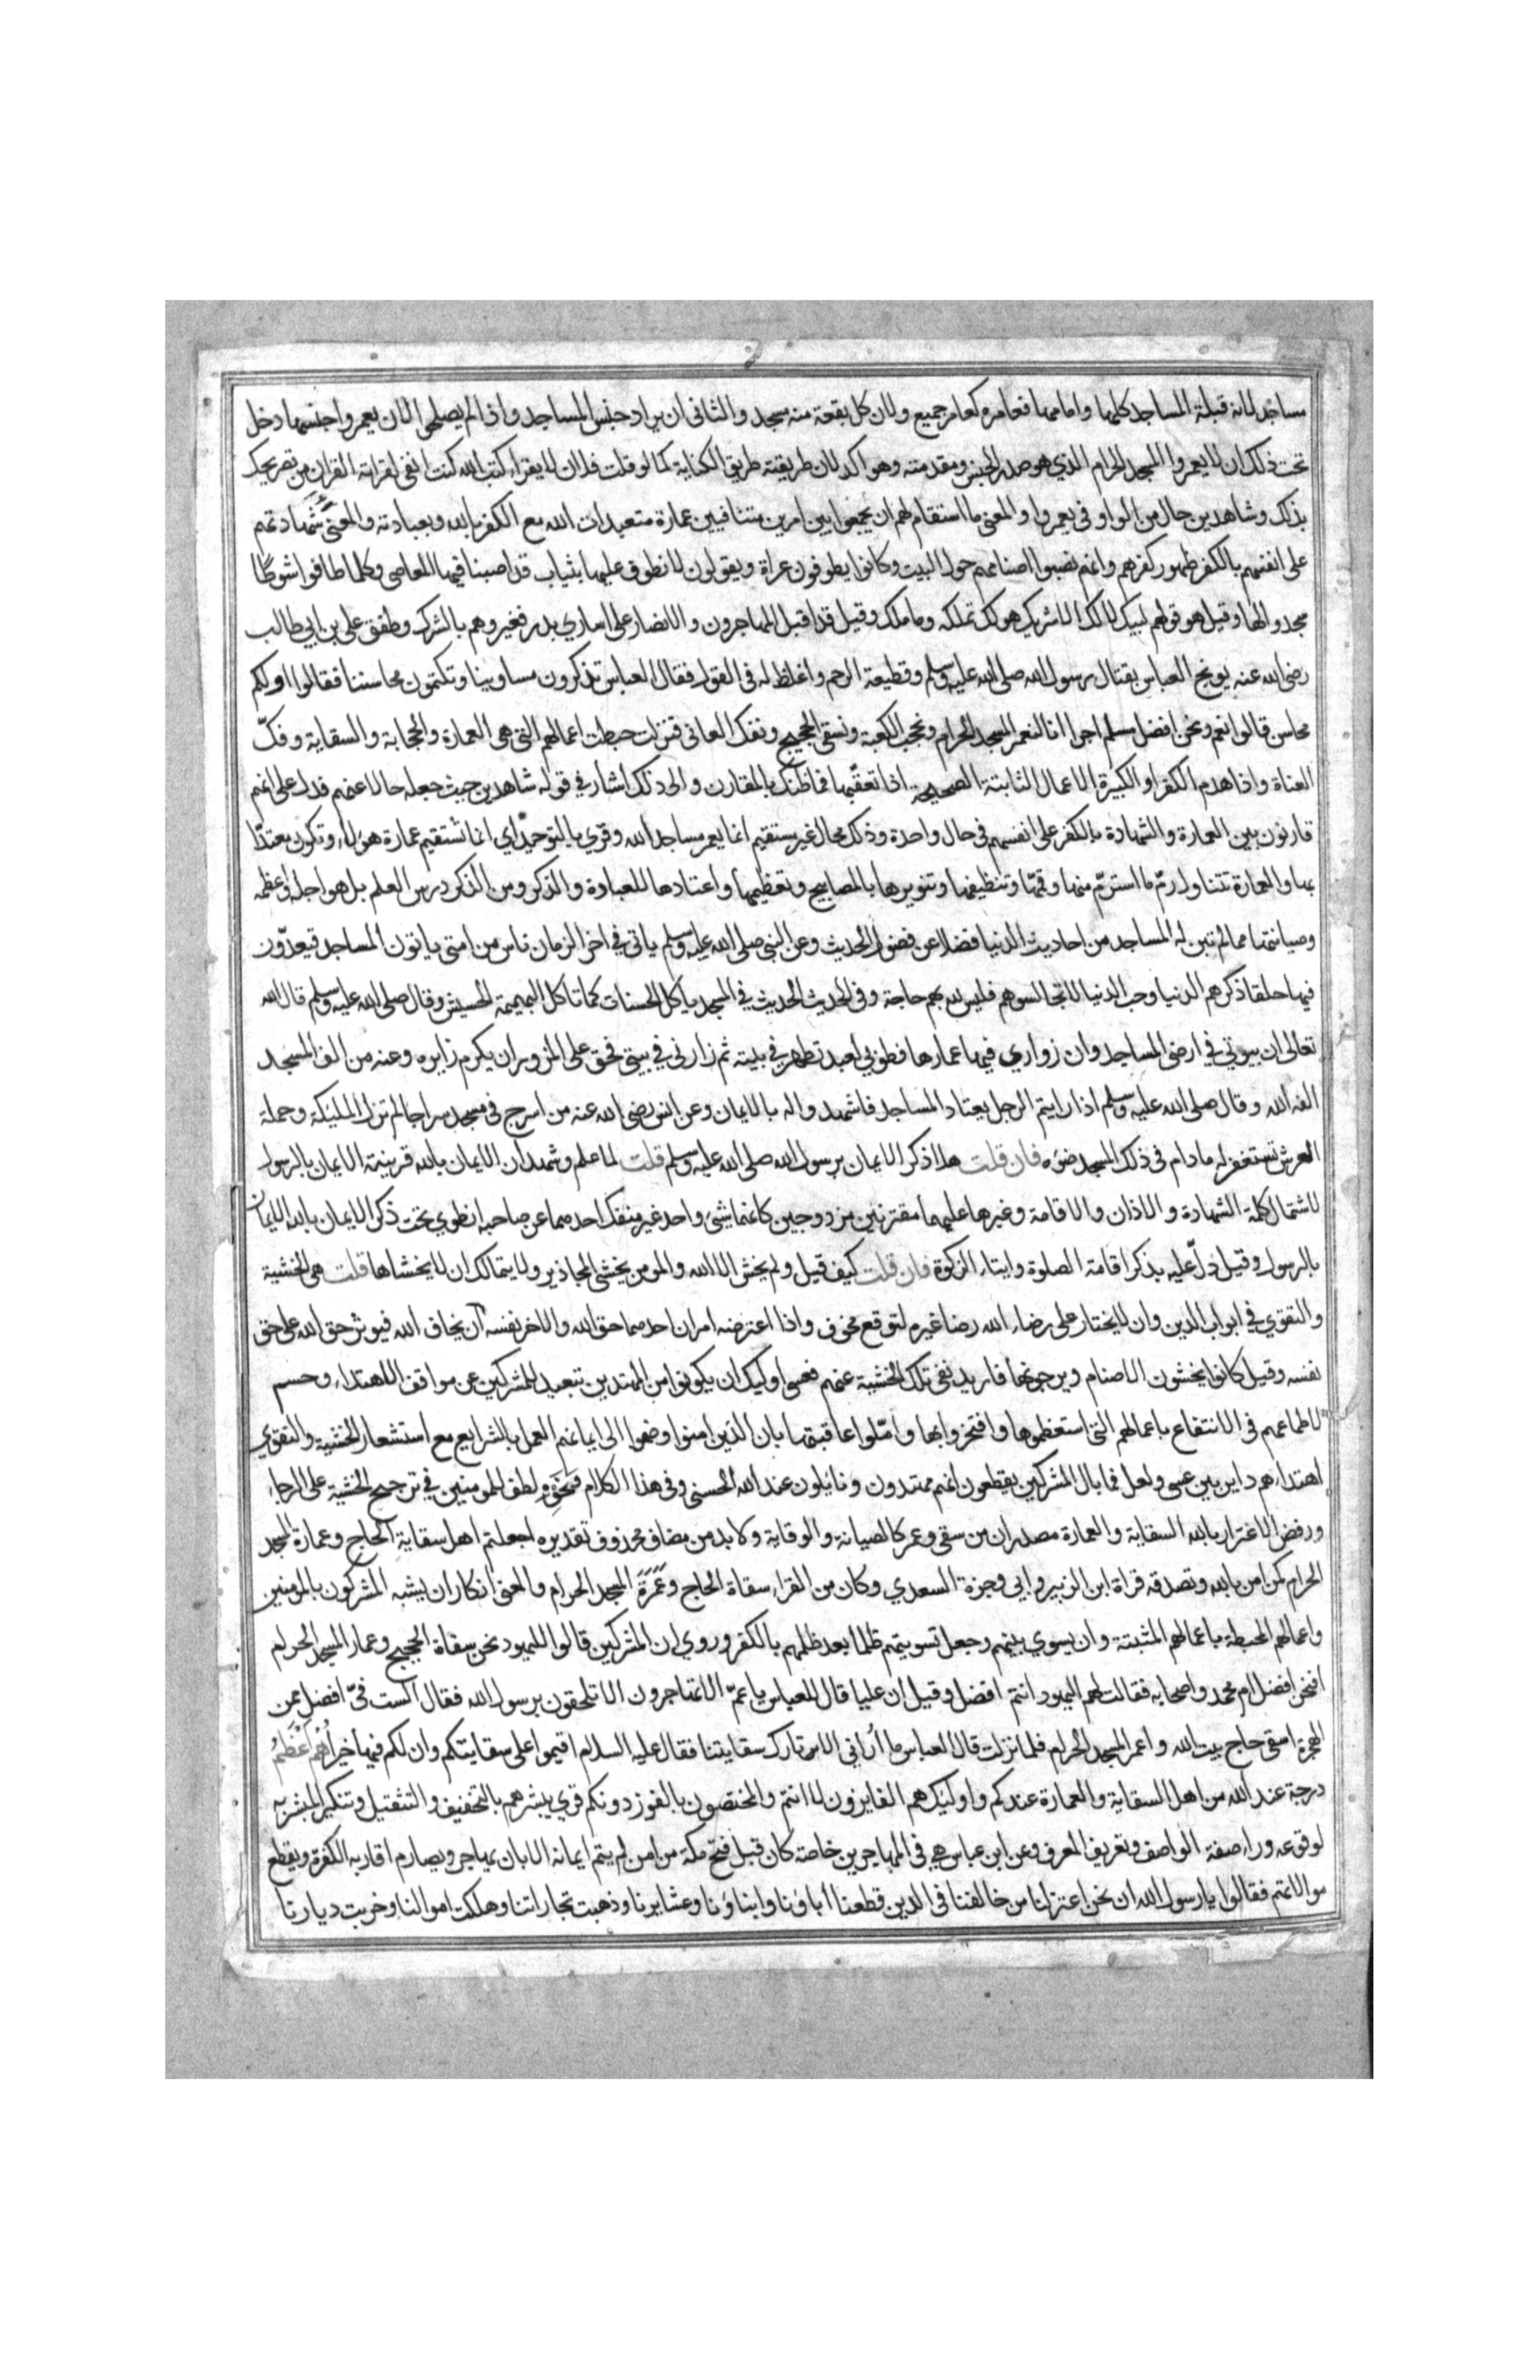 مساجد لانه قبلة المساجد كلها وامامها فعامره كعامر جميع ولان كل بقعة منه مسجد والثانى ان يراد جنس المساجد واذا لم يصلحوا لان يعمروا جنسها دخل
تحت ذلك ان لا يعمروا المسجد الحرام الذي هو صدر الجنس ومقدمته وهو اكد لان طريقته طريق الكناية كما لو قلت فلان لا يقراء كتب الله كنت انفى لقراته القران من تصريحك
بذلك وشاهدين حال من الواو فى يعمروا والمعنى ما استقام لهم ان يجمعوا بين امرين متنافيين عمارة متعبدات الله مع الكفر بالله وبعبادته والمعنى شهادتهم
على انفسهم بالكفر ظهور كفرهم وانهم نصبوا اصنامهم حول البيت وكانوا يطوفون عراة ويقولون لا نطوف عليها بثياب قد اصبنا فيها المعاصى وكلما طافوا شوطا
سجدوا لها وقيل هو قولهم لبيك لا لك الا شريك هو لك تملكه وما ملك وقيل قد اقبل المهاجرون والانصار على اسارى بدر فعيروهم بالشرك وطفق على بن ابى طالب
رضى الله عنه يوبخ العباس بقتال رسول الله صلى الله عليه وسلم وقطيعة الرحم واغلظ له فى القول فقال العباس تذكرون مساوينا وتكتمون محاسننا فقالوا اولكم
محاسن قالوا نعم ونحن افضل منكم اجرا انا لنعمر المسجد الحرام ونحجب الكعبة ونسقى الحجيج ونفك العانى فنزلت حبطت اعمالهم التى هى العمارة والحجابة والسقاية وفك
العناة واذا هدم الكفر او الكبيرة الاعمال الثابتة الصحيحة اذا تعقبها فما ظنك بالمقارن والى ذلك اشار في قوله شاهدين حيث جعله حالا عنهم فدل على انهم
قارنون بين العمارة والشهادة بالكفر على انفسهم فى حال واحدة وذلك محال غير مستقيم انما يعمر مساجد الله وقرى بالتوحيد اي انما تستقيم عمارة هؤلاء وتكون معتدا
بها والعمارة تتناول رم ما استرم منها وقمها وتنظيفها وتنويرها بالمصابيح وتعظيمها واعتادها للعبادة والذكر ومن الذكر درس العلم بل هو اجله واعظمه
وصيانتها مما لم تبن له المساجد من احاديث الدنيا فضلا عن فضول الحديث وعن النبى صلى الله عليه وسلم ياتى في اخر الزمان ناس من امتى ياتون المساجد فيعدون
فيها حلقا ذكرهم الدنيا وحب الدنيا لا تجالسوهم فليس لله بهم حاجة وفى الحديث الحديث في المسجد ياكل الحسنات كما تاكل البهيمة الحشيش وقال صلى الله عليه وسلم قال الله
تعالى ان بيوتى في ارضى المساجد وان زواري فيها عمارها فطوبى لعبد تطهر في بيته ثم زارنى في بيتى فحق على المزور ان يكرم زايره وعنه من الف المسجد
الفه الله وقال صلى الله عليه وسلم اذا رايتم الرجل يعتاد المساجد فاشهدوا له بالايمان وعن انس رضى الله عنه من اسرج فى مسجد سراجا لم تزل المليكة وحملة
العرش تستغفر له ما دام فى ذلك المسجد ضوه فان قلت هلا ذكر الايمان برسول الله صلى الله عليه وسلم قلت لما علم وشهد ان الايمان بالله قرينته الايمان بالرسول
لاشتمال كلمة الشهادة والاذان والاقامة وغيرها عليهما مقترنين مزدوجين كانهما شىء واحد غير منفك احدهما عن صاحبه انطوى تحت ذكر الايمان بالله الايمان
بالرسول وقيل دل عليه بذكر اقامة الصلوة وايتاء الزكوة فان قلت كيف قيل ولم يخش الا الله والمومن يخشى المحاذير ولا يتمالك ان لا يخشاها قلت هى الخشية
والتقوي في ابواب الدين وان لا يختار على رضاء الله رضا غيره لتوقع مخوف واذا اعترضه امران احدهما حق الله والاخر نفسه ان يخاف الله فيوثر حق الله على حق
نفسه وقيل كانوا يخشون الاصنام ويرجونها فاريد نفى تلك الخشية عنهم فعسى اوليك ان يكونوا من المهتدين تبعيد للمشركين عن مواقف الاهتداء وحسم
لاطماعهم فى الانتفاع باعمالهم التى استعظموها وافتخروا بها واملوا عاقبتها بان الذين امنوا وضموا الى ايمانهم العمل بالشرايع مع استشعار الخشية والتقوي
اهتداءهم داير بين عسى ولعل فما بال المشركين يقطعون انهم مهتدون ونايلون عند الله الحسنى وفى هذا الكلام ونحوه لطف للمومنين في ترجيح الخشية على الرجاء
ورفض الاغترار بالله السقاية والعمارة مصدران من سقى وعمر كالصيانة والوقاية ولا بد من مضاف محذوف تقديره اجعلتم اهل سقاية الحاج وعمارة المسجد
الحرام كمن امن بالله وتصدقه قراة ابن الزبير وابى وجزة السعدي وكان من القراء سقاة الحاج وعمرة المسجد الحرام والمعنى انكار ان يشبه المشركون بالمومنين
واعمالهم المحبطة باعمالهم المثبتة وان يسوي بينهم وجعل تسويتهم ظلما بعد ظلمهم بالكفر وروي ان المشركين قالوا لليهود نحن سقاة الحجيج وعمار المسجد الحرام
افنحن افضل ام محمد واصحابه فقالت لهم اليهود انتم افضل وقيل ان عليا قال للعباس يا عم الا تهاجرون الا تلحقون برسول الله فقال الست فى افضل من
الهجرة اسقى حاج بيت الله واعمر المسجد الحرام فلما نزلت قال العباس ما أرانى الا تارك سقايتنا فقال عليه السلام اقيموا على سقايتكم وان لكم فيها خيرا هم اعظم
درجة عند الله من اهل السقاية والعمارة عندكم واوليك هم الفايزون لا انتم والمختصون بالفوز دونكم قري يبشرهم بالتخفيف والتثقيل وتنكير المبشر به
لوقوعه وراء صفة الواصف وتعريف المعرف وعن ابن عباس هى فى المهاجرين خاصة كان قبل فتح مكة من امن لم يتم ايمانه الا بان يهاجر ويصارم اقاربه الكفرة ويقطع
موالاتهم فقالوا يا رسول الله ان نحن اعتزلنا من خالفنا فى الدين قطعنا أباؤنا وابناؤنا وعشايرنا وذهبت تجاراتنا وهلكت اموالنا وخربت ديارنا